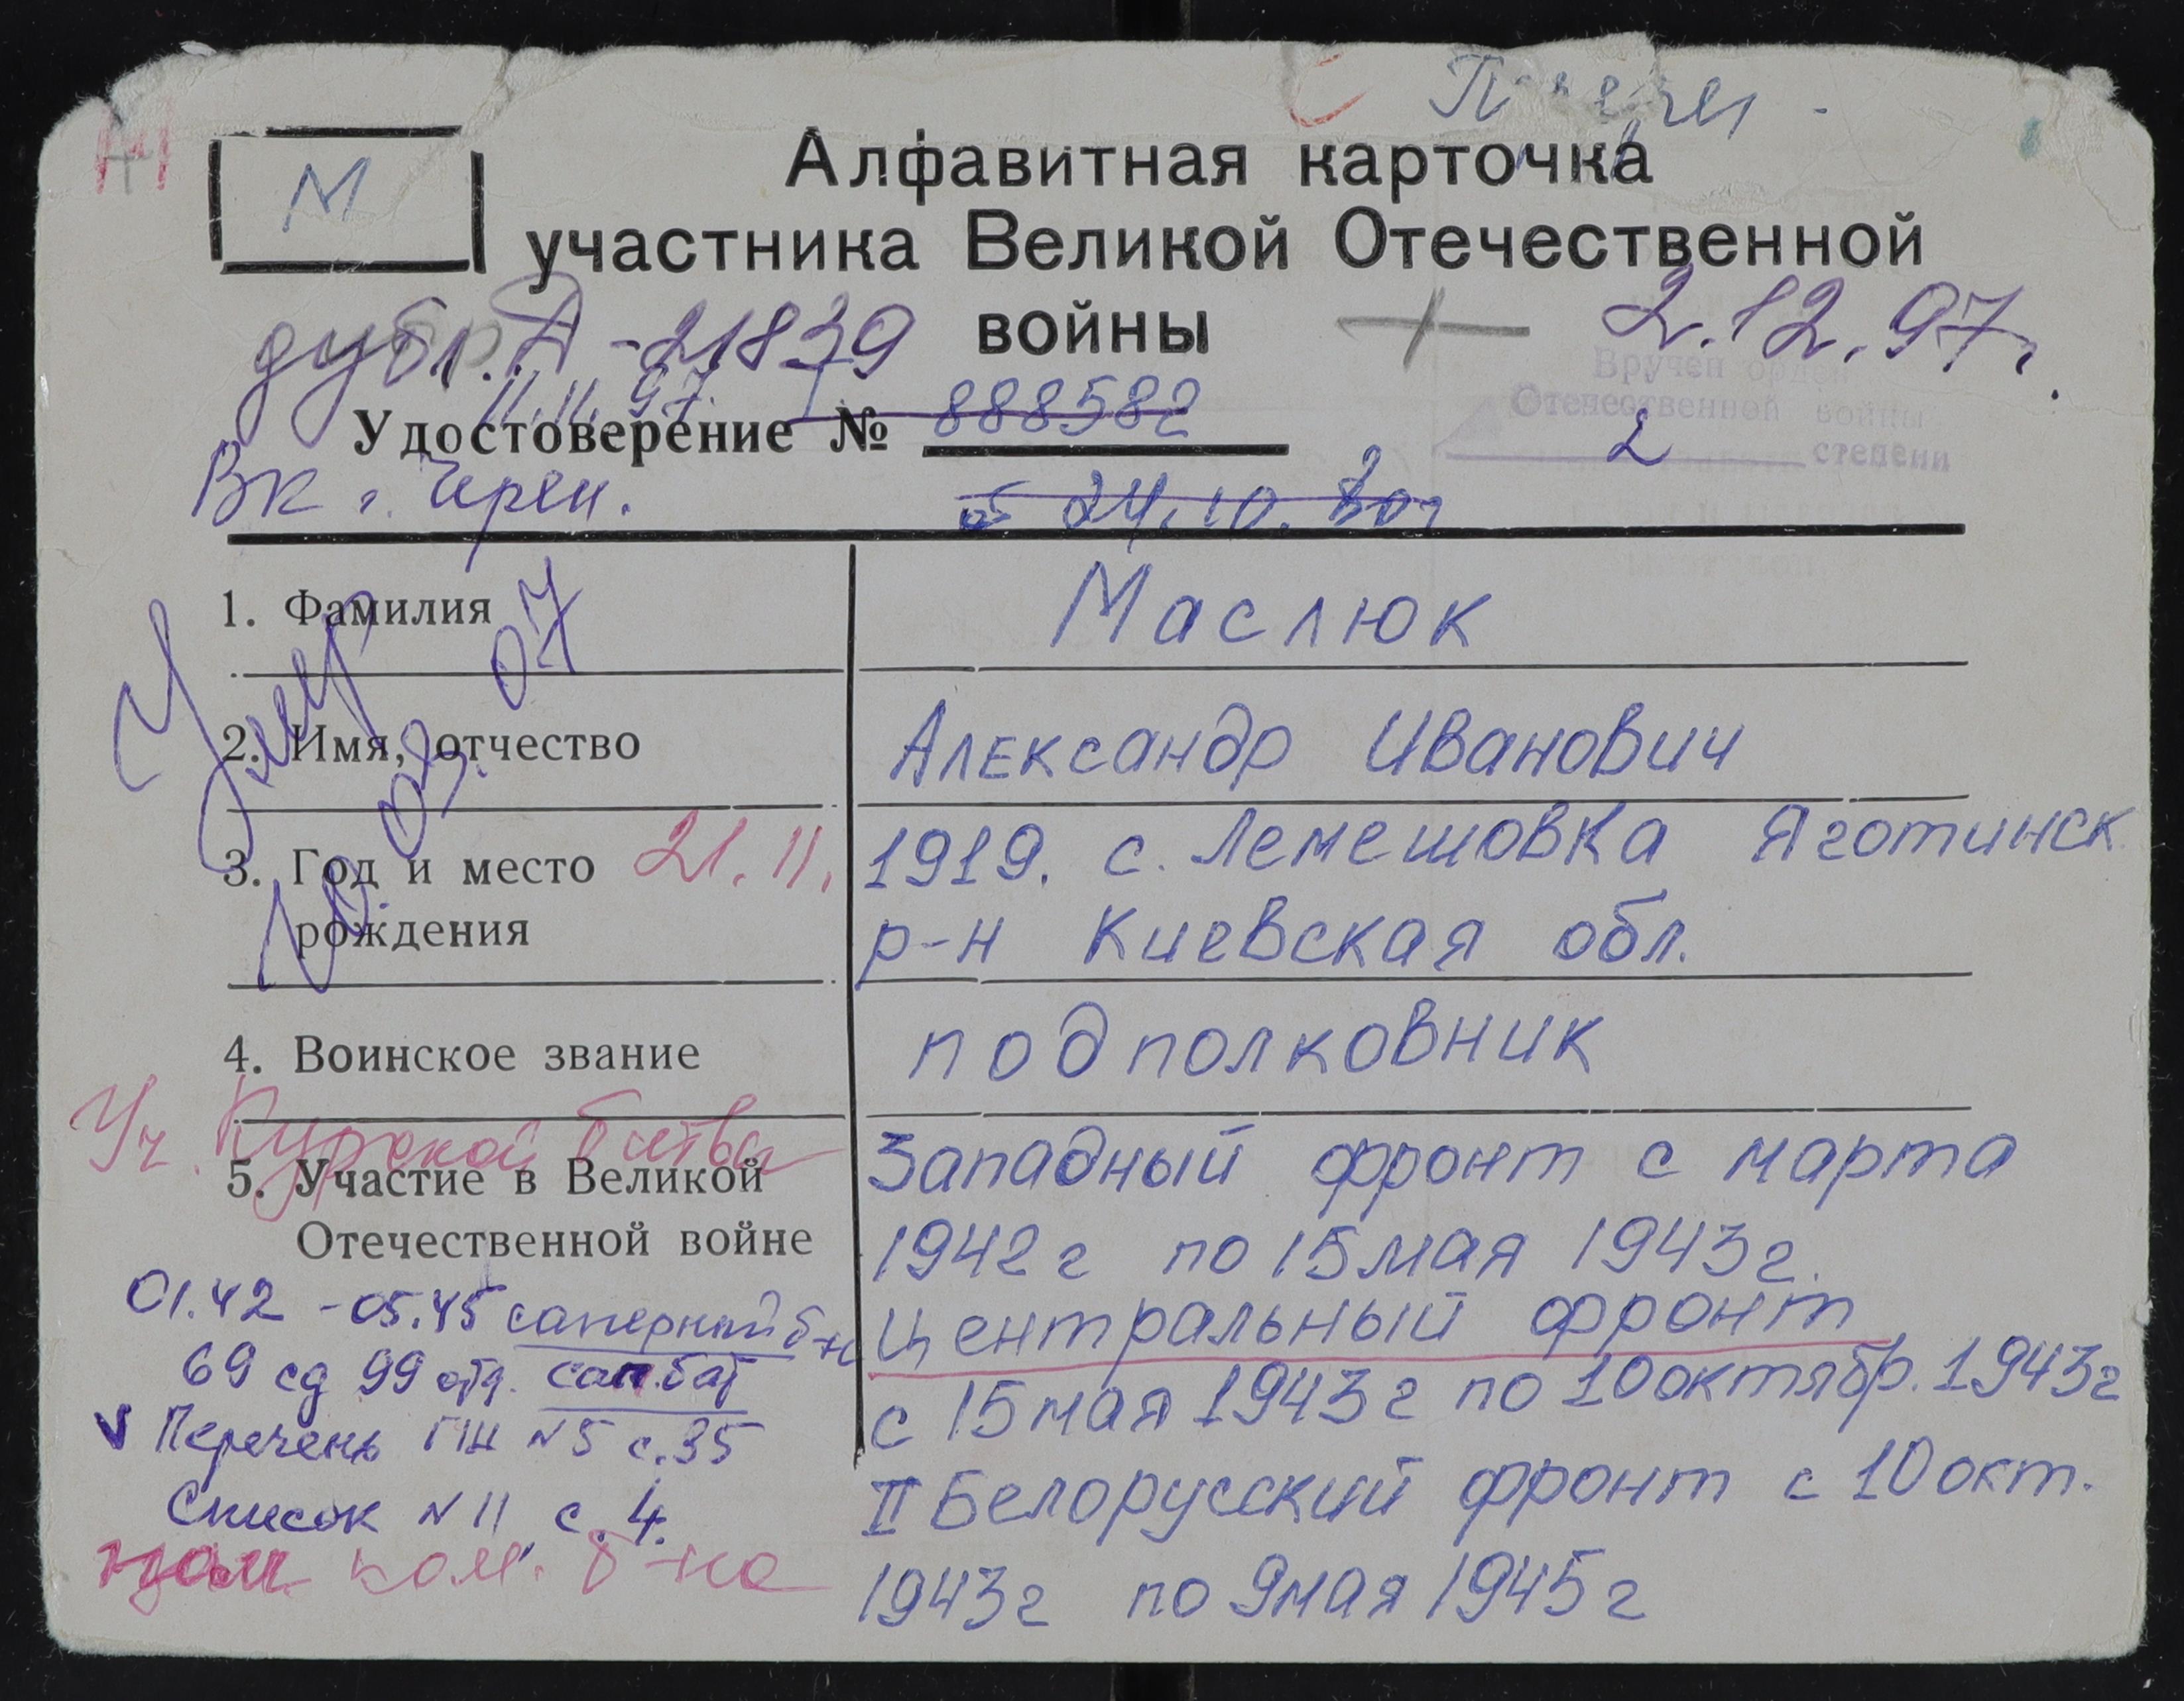 М
Алфавитная карточка
участника Великой Отечественной
войны
дубл. А-21839
2.12.97г.
11.11.97.
Удостоверение № 888582
Вручен орден
Отечественной войны
2 степени
Вк г. Череп.
от 24.10.80г
1. Фамилия Маслюк
2. Имя, отчество Александр Иванович
Умер
10.03.07
3. Год и место 21.11. 1919. с. Лемешовка Яготинск
рождения р-н Киевская обл.
4. Воинское звание подполковник
Уч. Курской битвы
5. Участие в Великой
Отечественной войне
Западный фронт с марта
1942г по 15 мая 1943г.
Центральный фронт
с 15 мая 1943г по 10 октябр. 1943г
II Белорусский фронт с 10 окт.
1943г по 9 мая 1945г
01.42 - 05.45 саперный б-н
69 сд 99 отд. сап.бат
V Перечень ГШ N5 с.35
Список N 11 с. 4.
ком. б-на